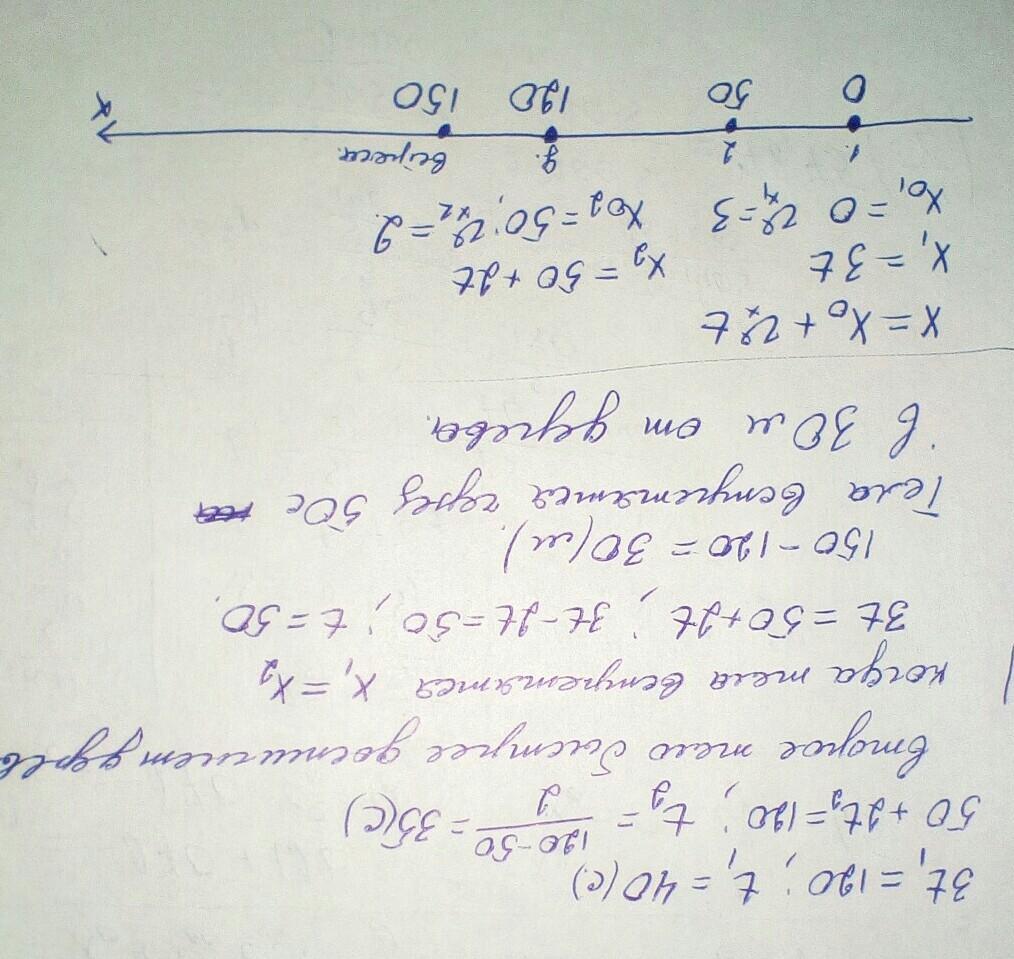 3t₁ = 120; t₁ = 40(с.)
50 + 2t₂ = 120; t₂ = 120-50/2 = 35(с)
Второе тело быстрее достигнет дерев
когда тела встретятся x₁ = x₂
3t = 50 + 2t; 3t - 2t = 50; t = 50.
150 - 120 = 30(м).
Тела встретятся через 50с
в 30 м от дерева.
x = x₀ + vₓt
x₁ = 3t x₂ = 50 + 2t
x₀₁ = 0 vₓ₁ = 3 x₀₂ = 50; vₓ₂ = 2.
1. 2 д. встреча.
0 50 120 150 x